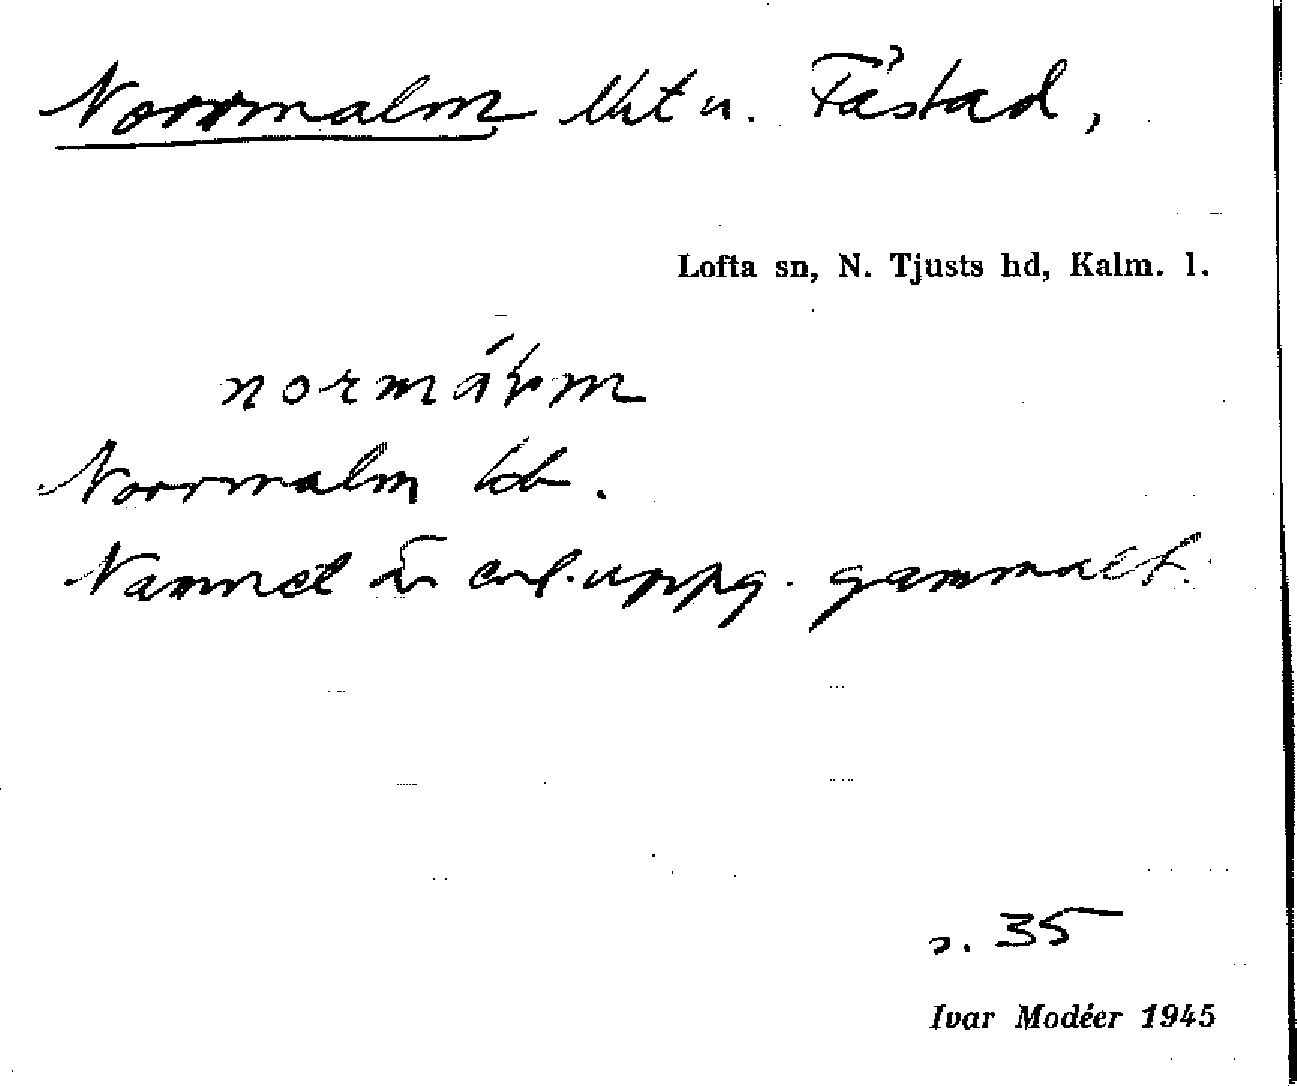 Norrmalm lht u. Fåstad,
Lofta sn, N. Tjusts hd, Kalm. l.
Norrmalm kb.
Namnet är enl. uppg. gammalt.
s. 35
Ivar Modéer 1945